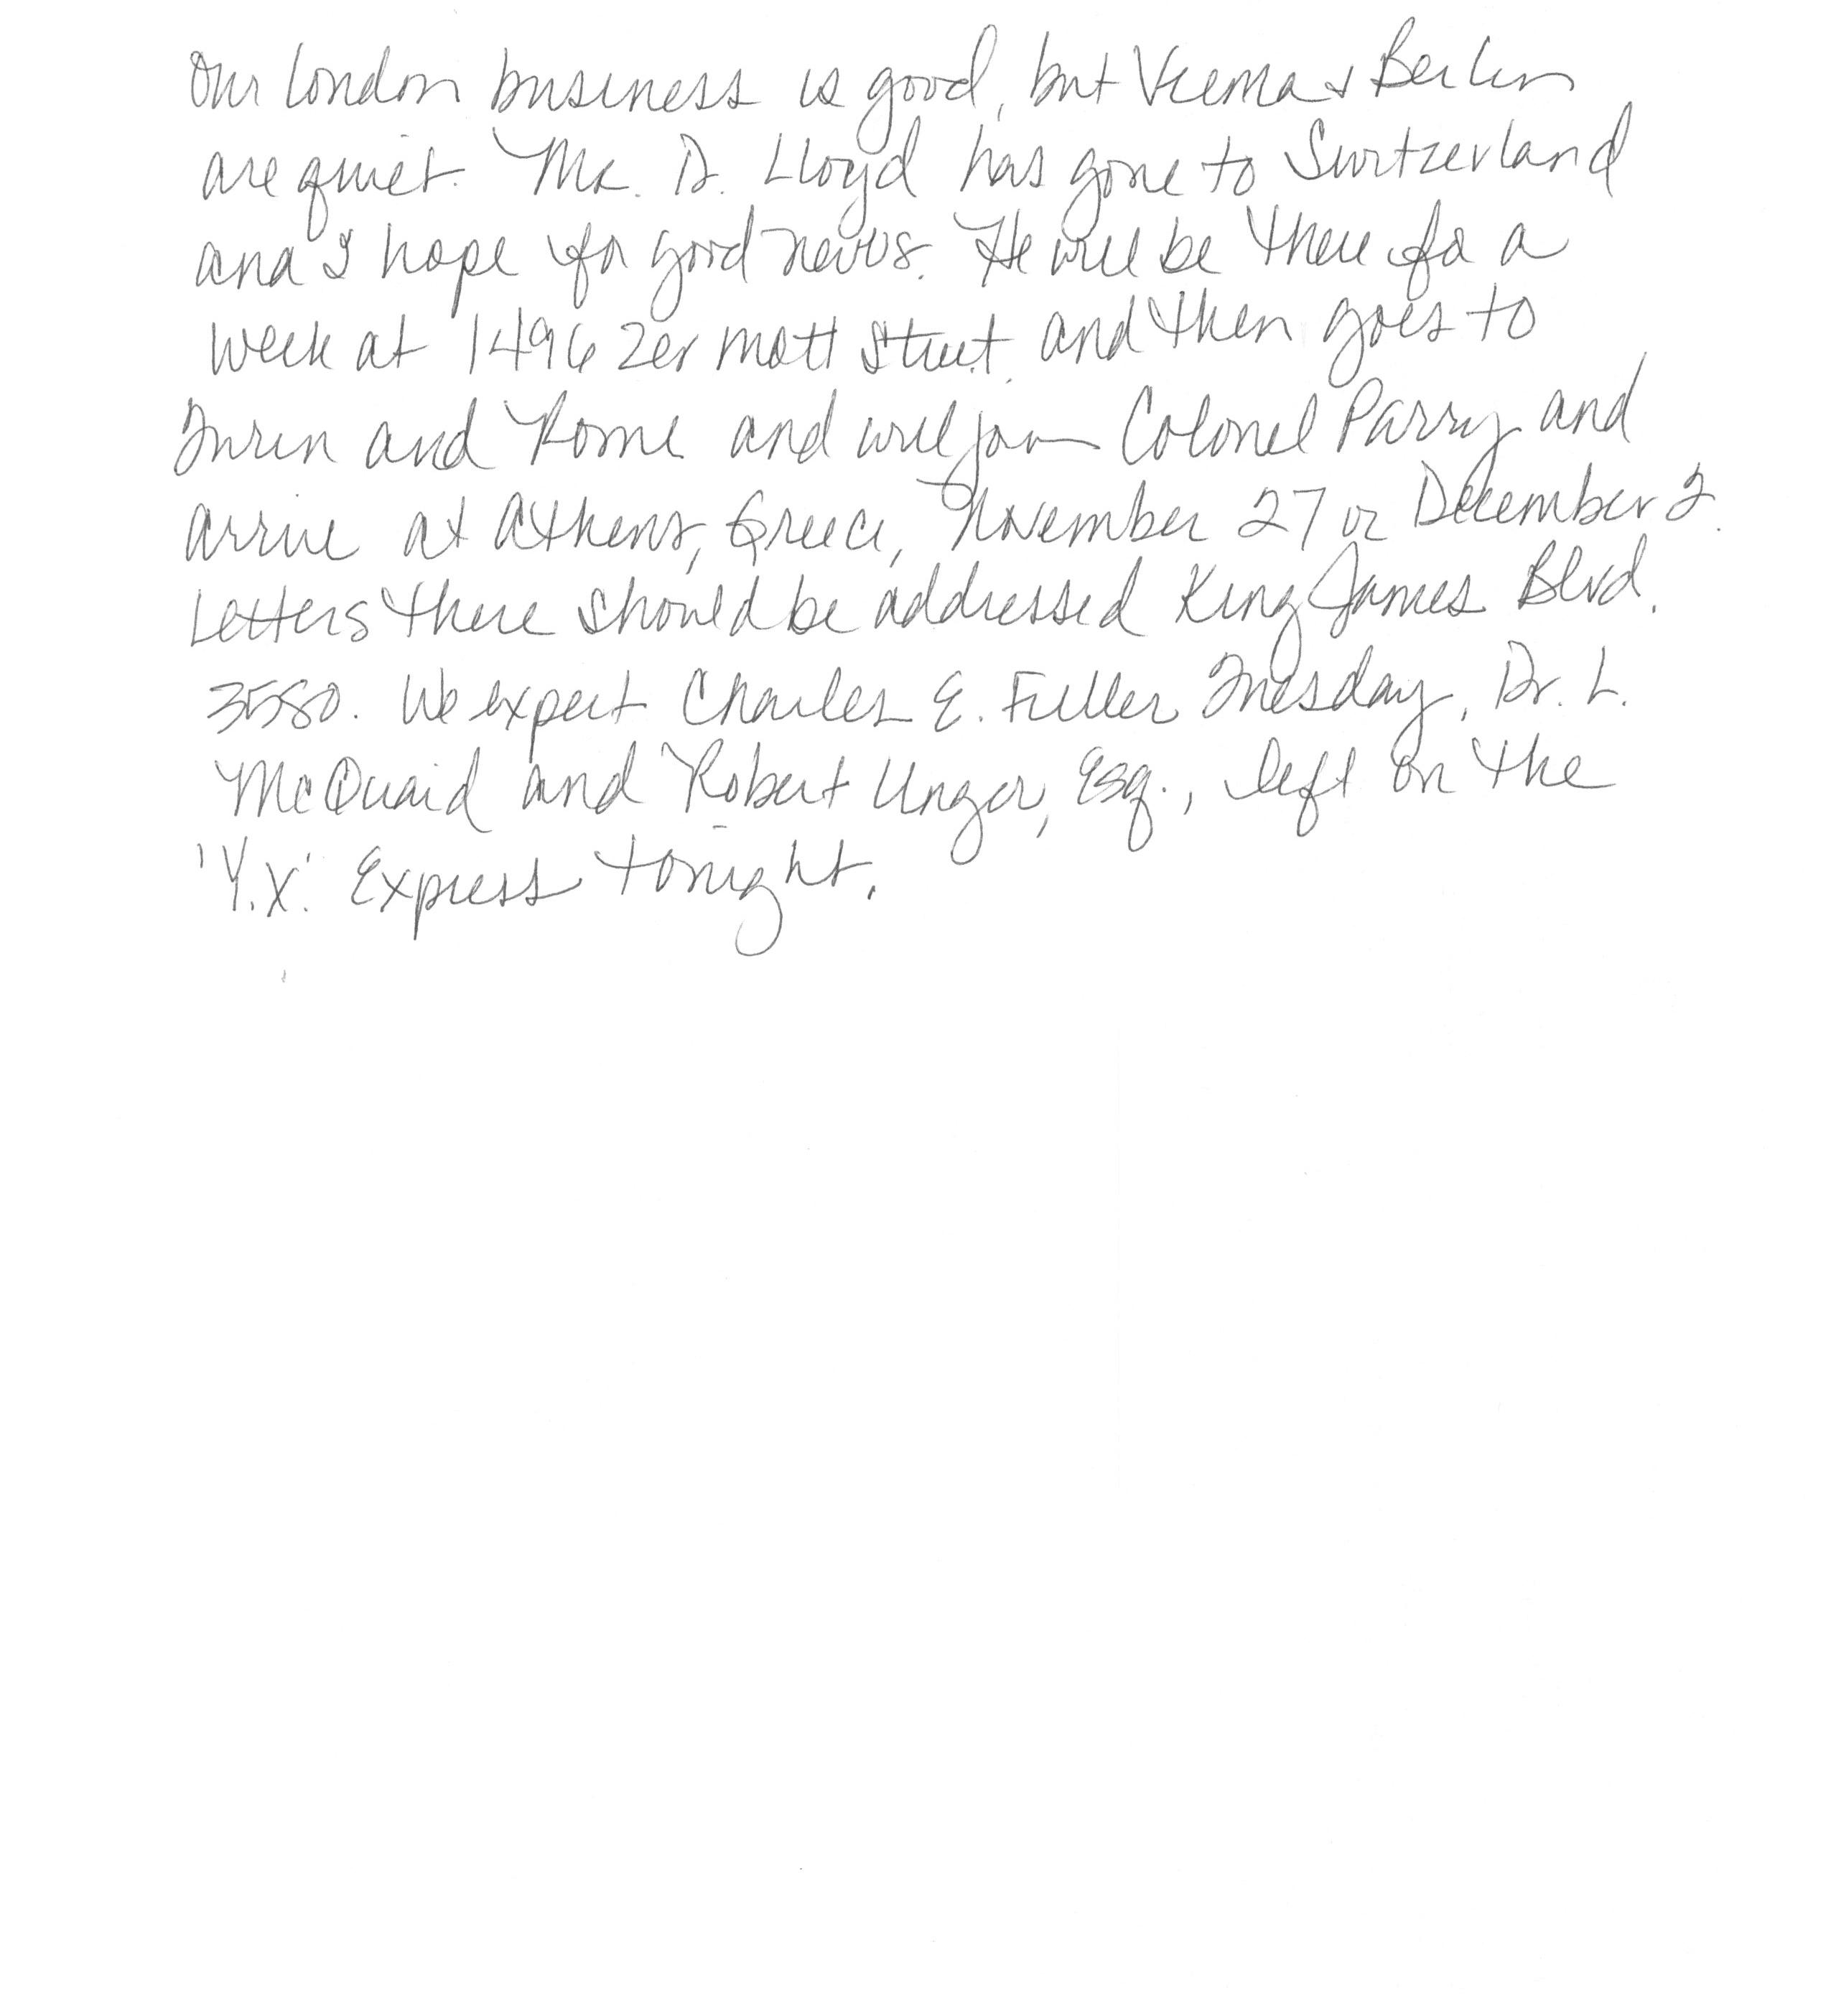 Our London business is good, but Vienna & Berlin
are quiet. Mr. D. Lloyd has gone to Switzerland
and I hope for good news. He will be there for a
week at 1496 Zermatt Street and then goes to
Turin and Rome and will join Colonel Parry and
arrive at Athens, Greece, November 27 or December 2.
Letters there should be addressed King James Blvd.
3580. We expect Charles E. Fuller Tuesday, Dr. L.
McQuaid and Robert Unger, Esq., left on the
'Y.X.' Express tonight.